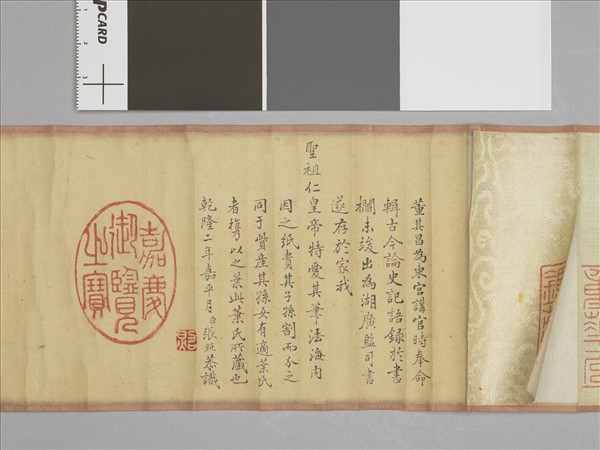 董其昌為東宮講官時奉命
輯古今論史記語錄於書
欄未竣出為湖廣監司書
遂存於家我
聖祖仁皇帝特愛其筆法海內
因之紙貴其子孫割而分之
同于貲產其孫女有適葉氏
者攜以之葉此葉氏所藏也
乾隆二年嘉平月臣張照恭識
嘉慶
御覽
之寶
CARD